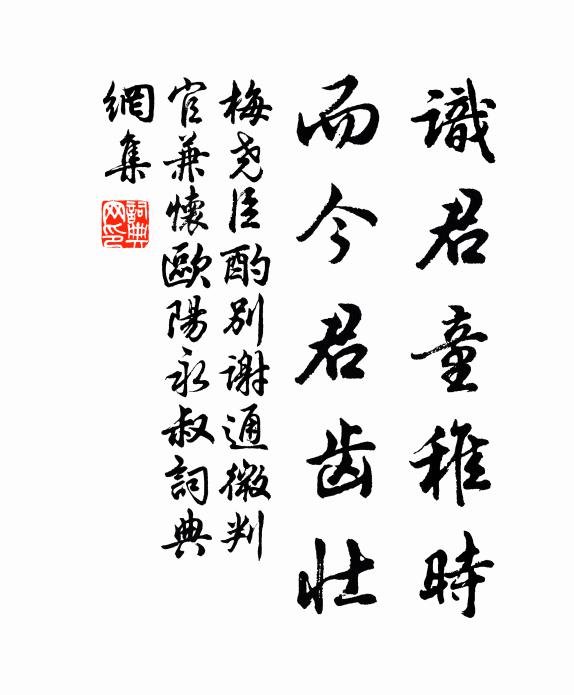 識君童稚時
而今君齿壮
梅尧臣酌别谢通微判
官兼懷歐陽永叔詞典
網集
詞典網印